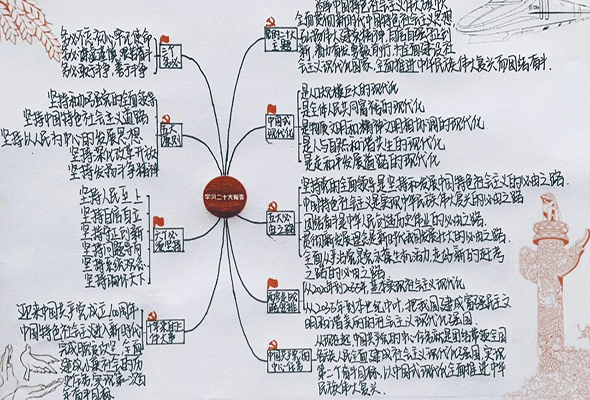 三个务必
务必不忘初心、牢记使命
务必谦虚谨慎、艰苦奋斗
务必敢于斗争、善于斗争
五大原则
坚持和加强党的全面领导
坚持中国特色社会主义道路
坚持以人民为中心的发展思想
坚持深化改革开放
坚持发扬斗争精神
六个必须坚持
坚持人民至上
坚持自信自立
坚持守正创新
坚持问题导向
坚持系统观念
坚持胸怀天下
十年来的三件大事
迎来中国共产党成立一百周年
中国特色社会主义进入新时代
完成脱贫攻坚、全面
建成小康社会的历
史任务,实现第一个百
年奋斗目标。
学习二十大报告
党的二十大主题
社会主义现代化国家、全面推进中华民族伟大复兴而团结奋斗。
中国式现代化
是人口规模巨大的现代化
是全体人民共同富裕的现代化
是物质文明和精神文明相协调的现代化
是人与自然和谐共生的现代化
是走和平发展道路的现代化
五大必由之路
坚持党的全面领导是坚持和发展中国特色社会主义的必由之路
中国特色社会主义是实现中华民族伟大复兴的必由之路
团结奋斗是中国人民创造历史伟业的必由之路
贯彻新发展理念是新时代我国发展壮大的必由之路
之路的必由之路
从2020年到2035年,基本实现社会主义现代化
从2035年到本世纪中叶,把我国建成富强民主
文明和谐美丽的社会主义现代化强国
中国共产党的中心任务
从现在起,中国共产党的中心任务就是团结带领全国
各族人民全面建成社会主义现代化强国、实现
第二个百年奋斗目标,以中国式现代化全面推进中华
民族伟大复兴。